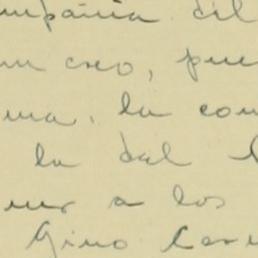 mpañia del
un creo, pue
ma, la com
la dal l
ner a los
Gino Car